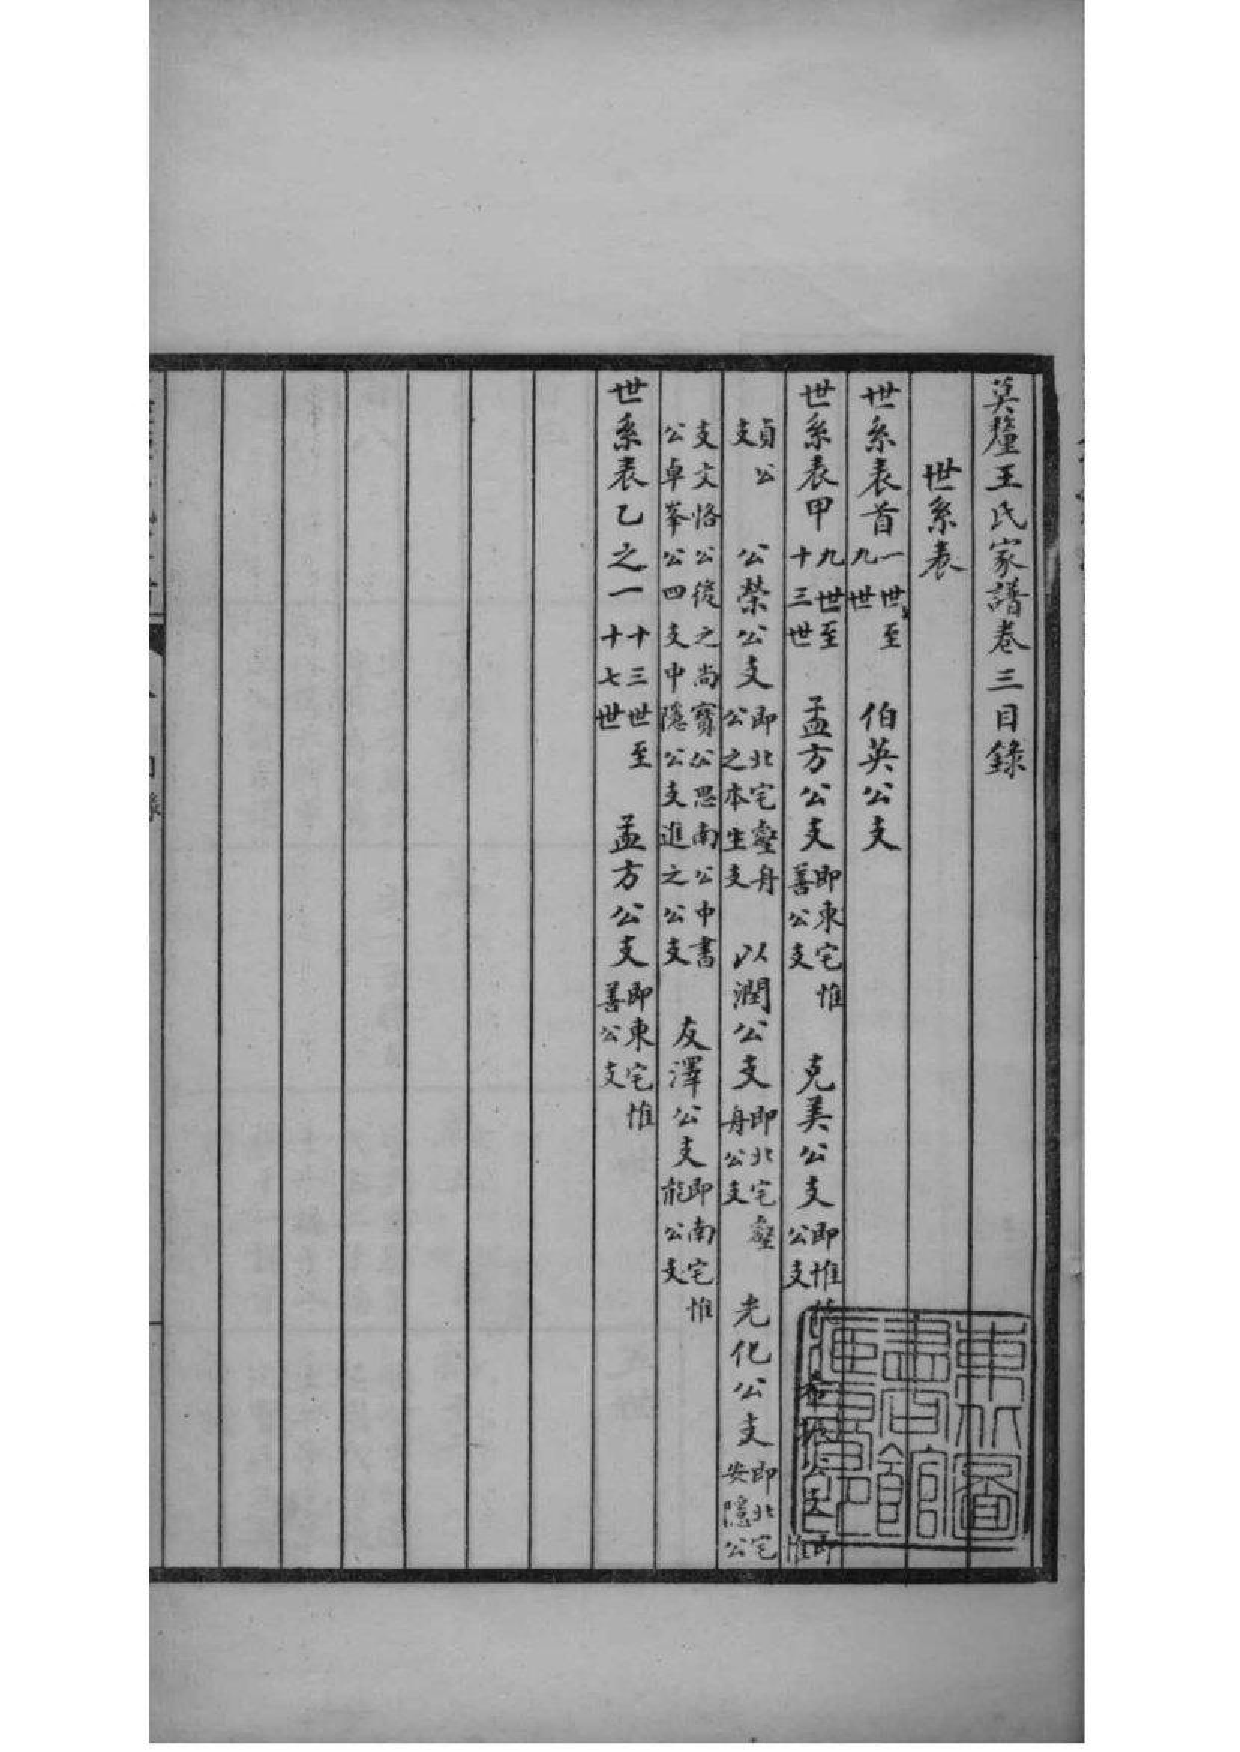 莫釐王氏家譜卷三目錄
世系表
世系表首 一世至九世 伯英公支
世系表甲 九世至十三世 孟方公支 即東宅惟善公支 克美公支 即惟公支 希振公支 即惟
貞公支 公榮公支 即北宅壑舟公之本生支 以潤公支 即北宅壑舟公支 光化公支 即北宅安隱公
支文恪公後之尚寶公思南公中書公卓峯公四支中隱公支進之公支 友澤公支 即南宅惟能公支
世系表乙之一 十三世至十七世 孟方公支 即東宅惟善公支
東方圖書館